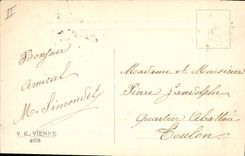 II
Bonjour
Amical
M. Simondet
V. K. VIENNE
4576
Madame et Monsieur
Pierre Gandolphe
Quartier
Toulon